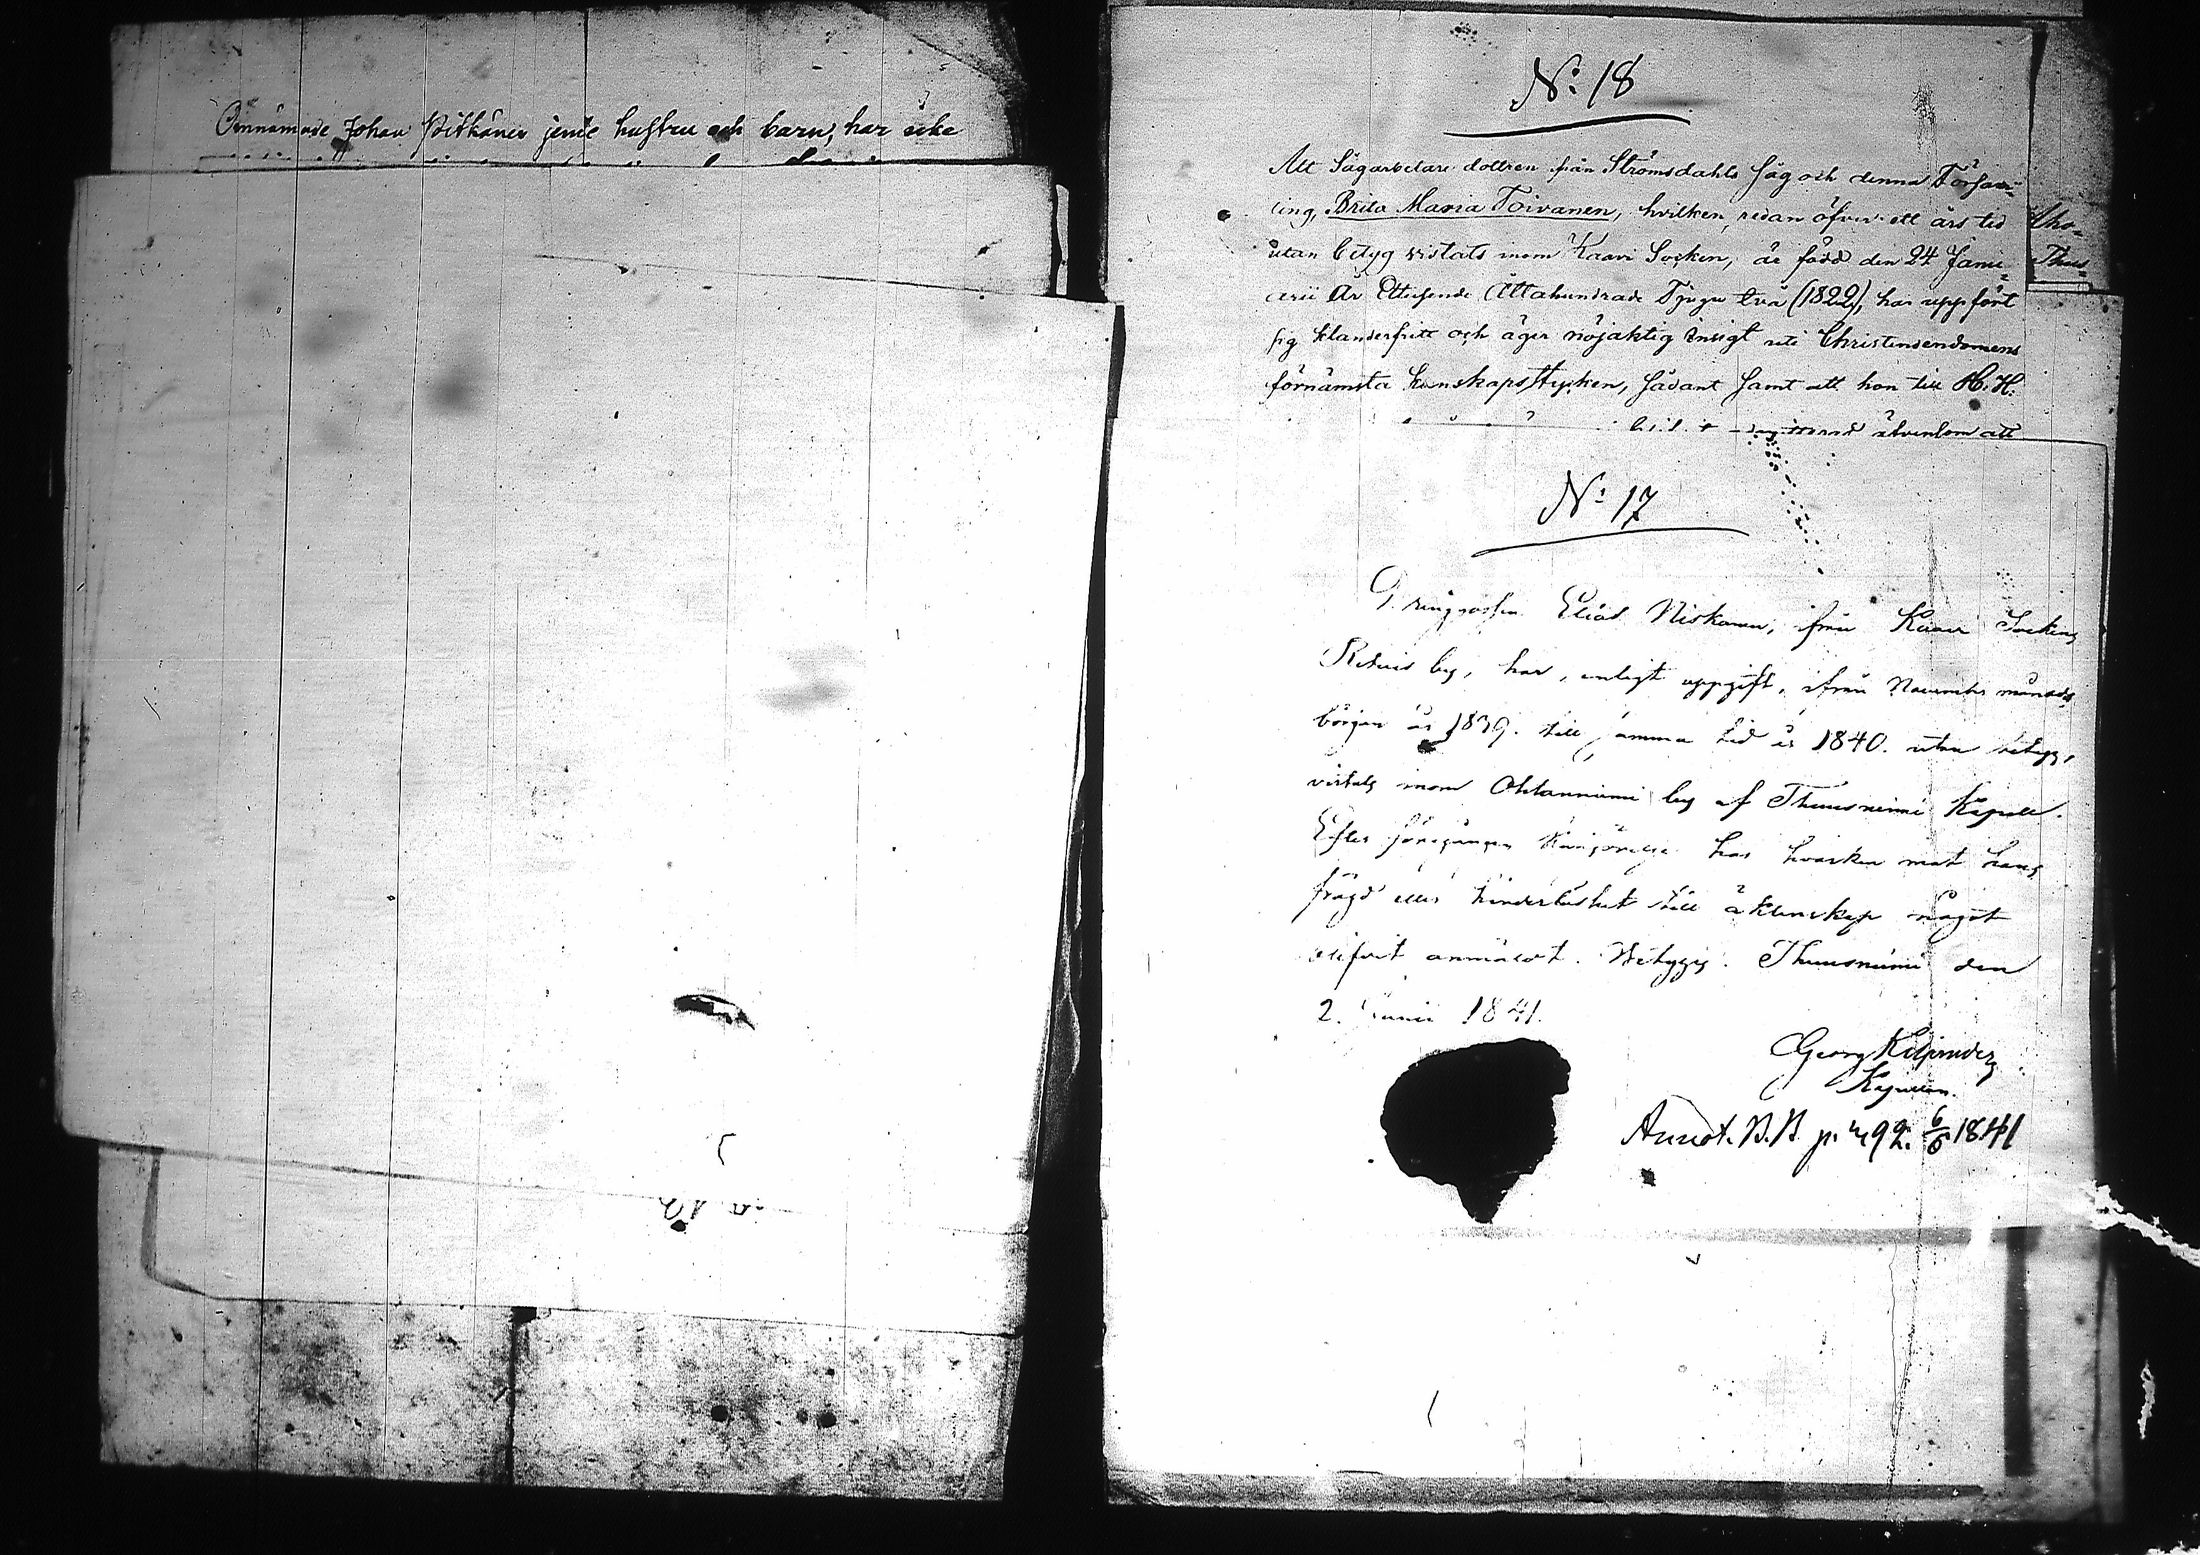 Omnämnde Johan Pitkänen jemte hustru och barn, har icke
N:o 18
Att Sågarbetare dottren från Strömsdahls såg och denna Försam-
ling, Brita Maria Toivanen, hvilken redan öfver ett års tid
utan betyg vistats inom Kaavi Socken, är född den 24 Janu-
arii År Ettusende Åttahundrade Tjugu två (1822), har uppfört
sig klanderfritt och äger nöjaktig insigt uti Christendomens
förnämsta kunskapsstycken, sådant samt att hon till H. H.
att
Thus-
N:o 17
Elias Niskanen, ifrån Kaavi Sockens
by, har, enligt uppgift, ifrån November månads
början år 1839. till samma tid år 1840. utan betyg,
vistats inom Ohtanniemi by af Thuusniemi Kapell.
Efter föregången kungörelse har hvarken mot hans
frägd eller hinderlöshet till äktenskap något
blifvit anmäldt. Betygas. Thuusniemi den
2. Junii 1841.
Georg
Kapellan.
Annot. B.B. p. 492. 6/6 1841